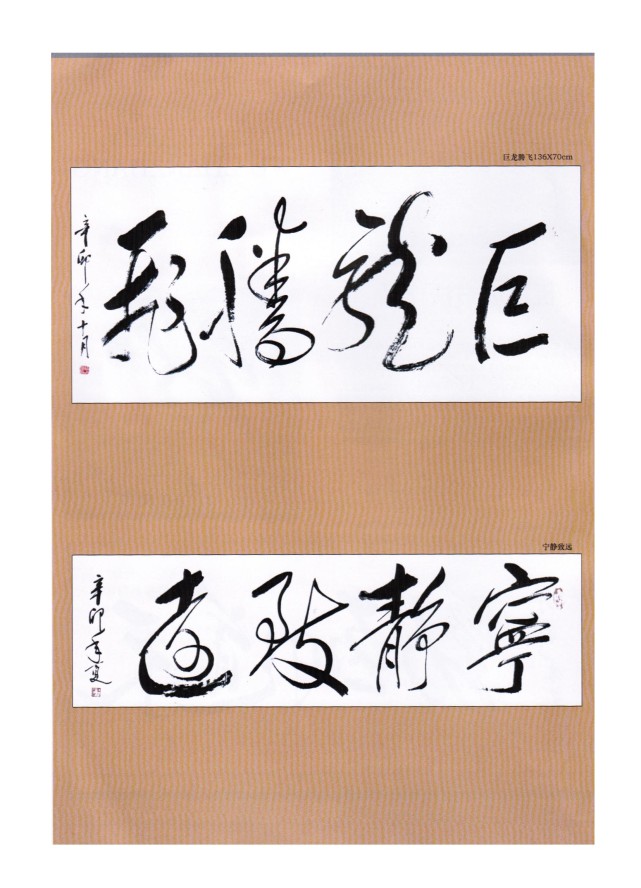 巨龙腾飞136X70cm
巨龍騰飛
辛卯年十月
宁静致远
寧静致遠
辛卯年夏